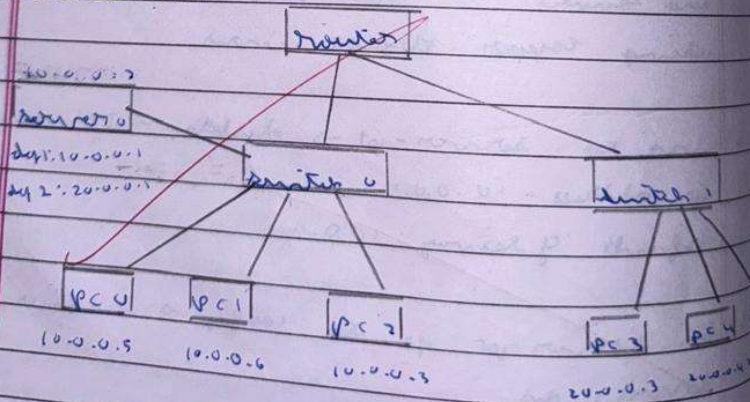 router
10.0.0.2
server 0
def 1: 10.0.0.1
def 2: 20.0.0.1
switch 0
switch 1
pc 0
pc 1
pc 2
pc 3
pc 4
10.0.0.5
10.0.0.6
10.0.0.3
20.0.0.3